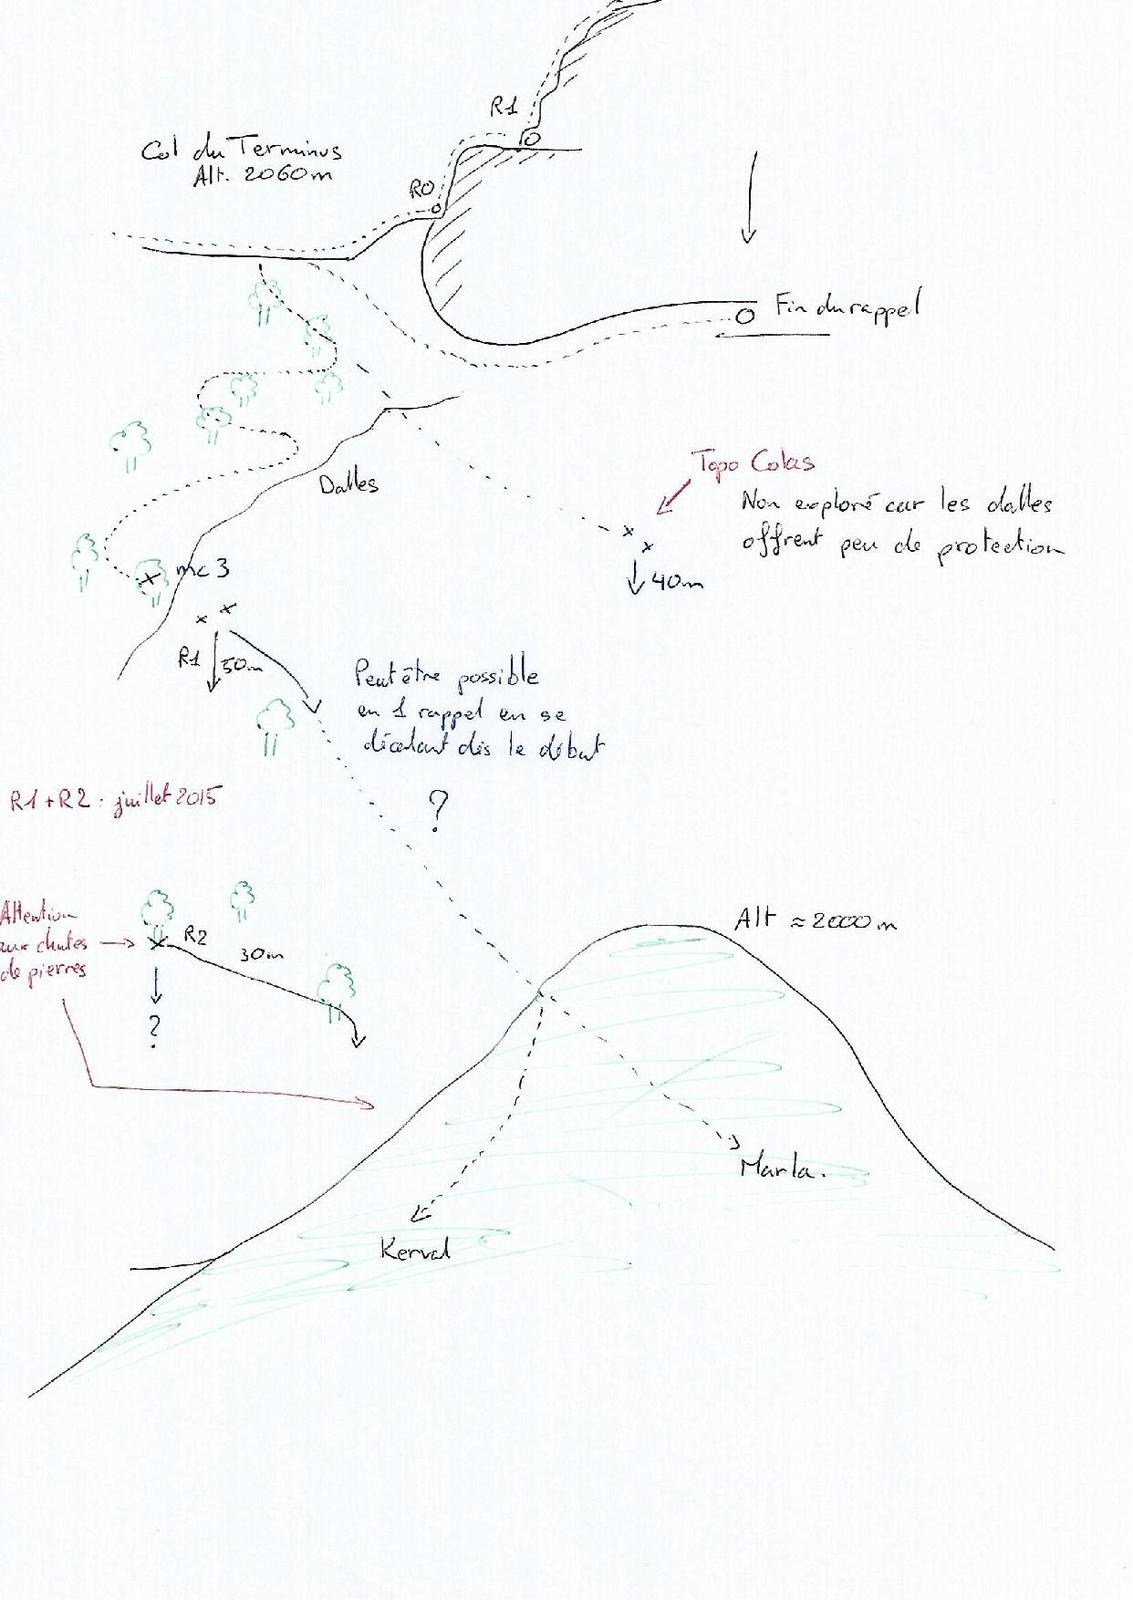 R1
Col du Terminus
Alt. 2060m
R0
Fin du rappel
Topo Colas
Dalles
Non exploré car les dalles
offrent peu de protection
mc 3
40m
R1
50m
Peut être possible
en 1 rappel en se
décalant dès le début
R1 + R2 : juillet 2015
?
Attention
aux chutes
de pierres
R2
30m
Alt ≈ 2000 m
?
Marla.
Kerval